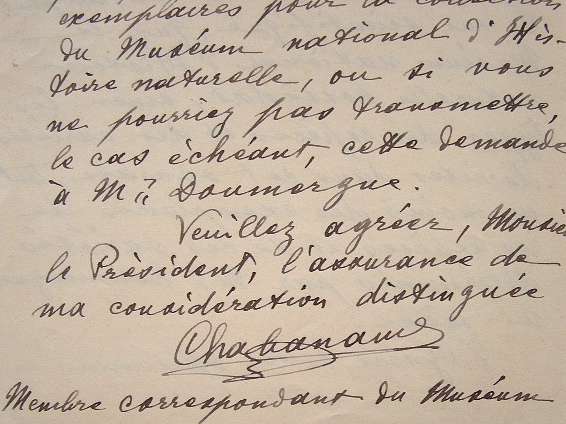 exemplaires pour la collection
du Muséum national d'His-
toire naturelle, ou si vous
ne pourriez pas transmettre,
le cas échéant, cette demande
à Mr. Doumergue.
Veuillez agréer, Monsieu
le Président, l'assurance de
ma considération distinguée
Chabanaud
Membre correspondant du Muséum